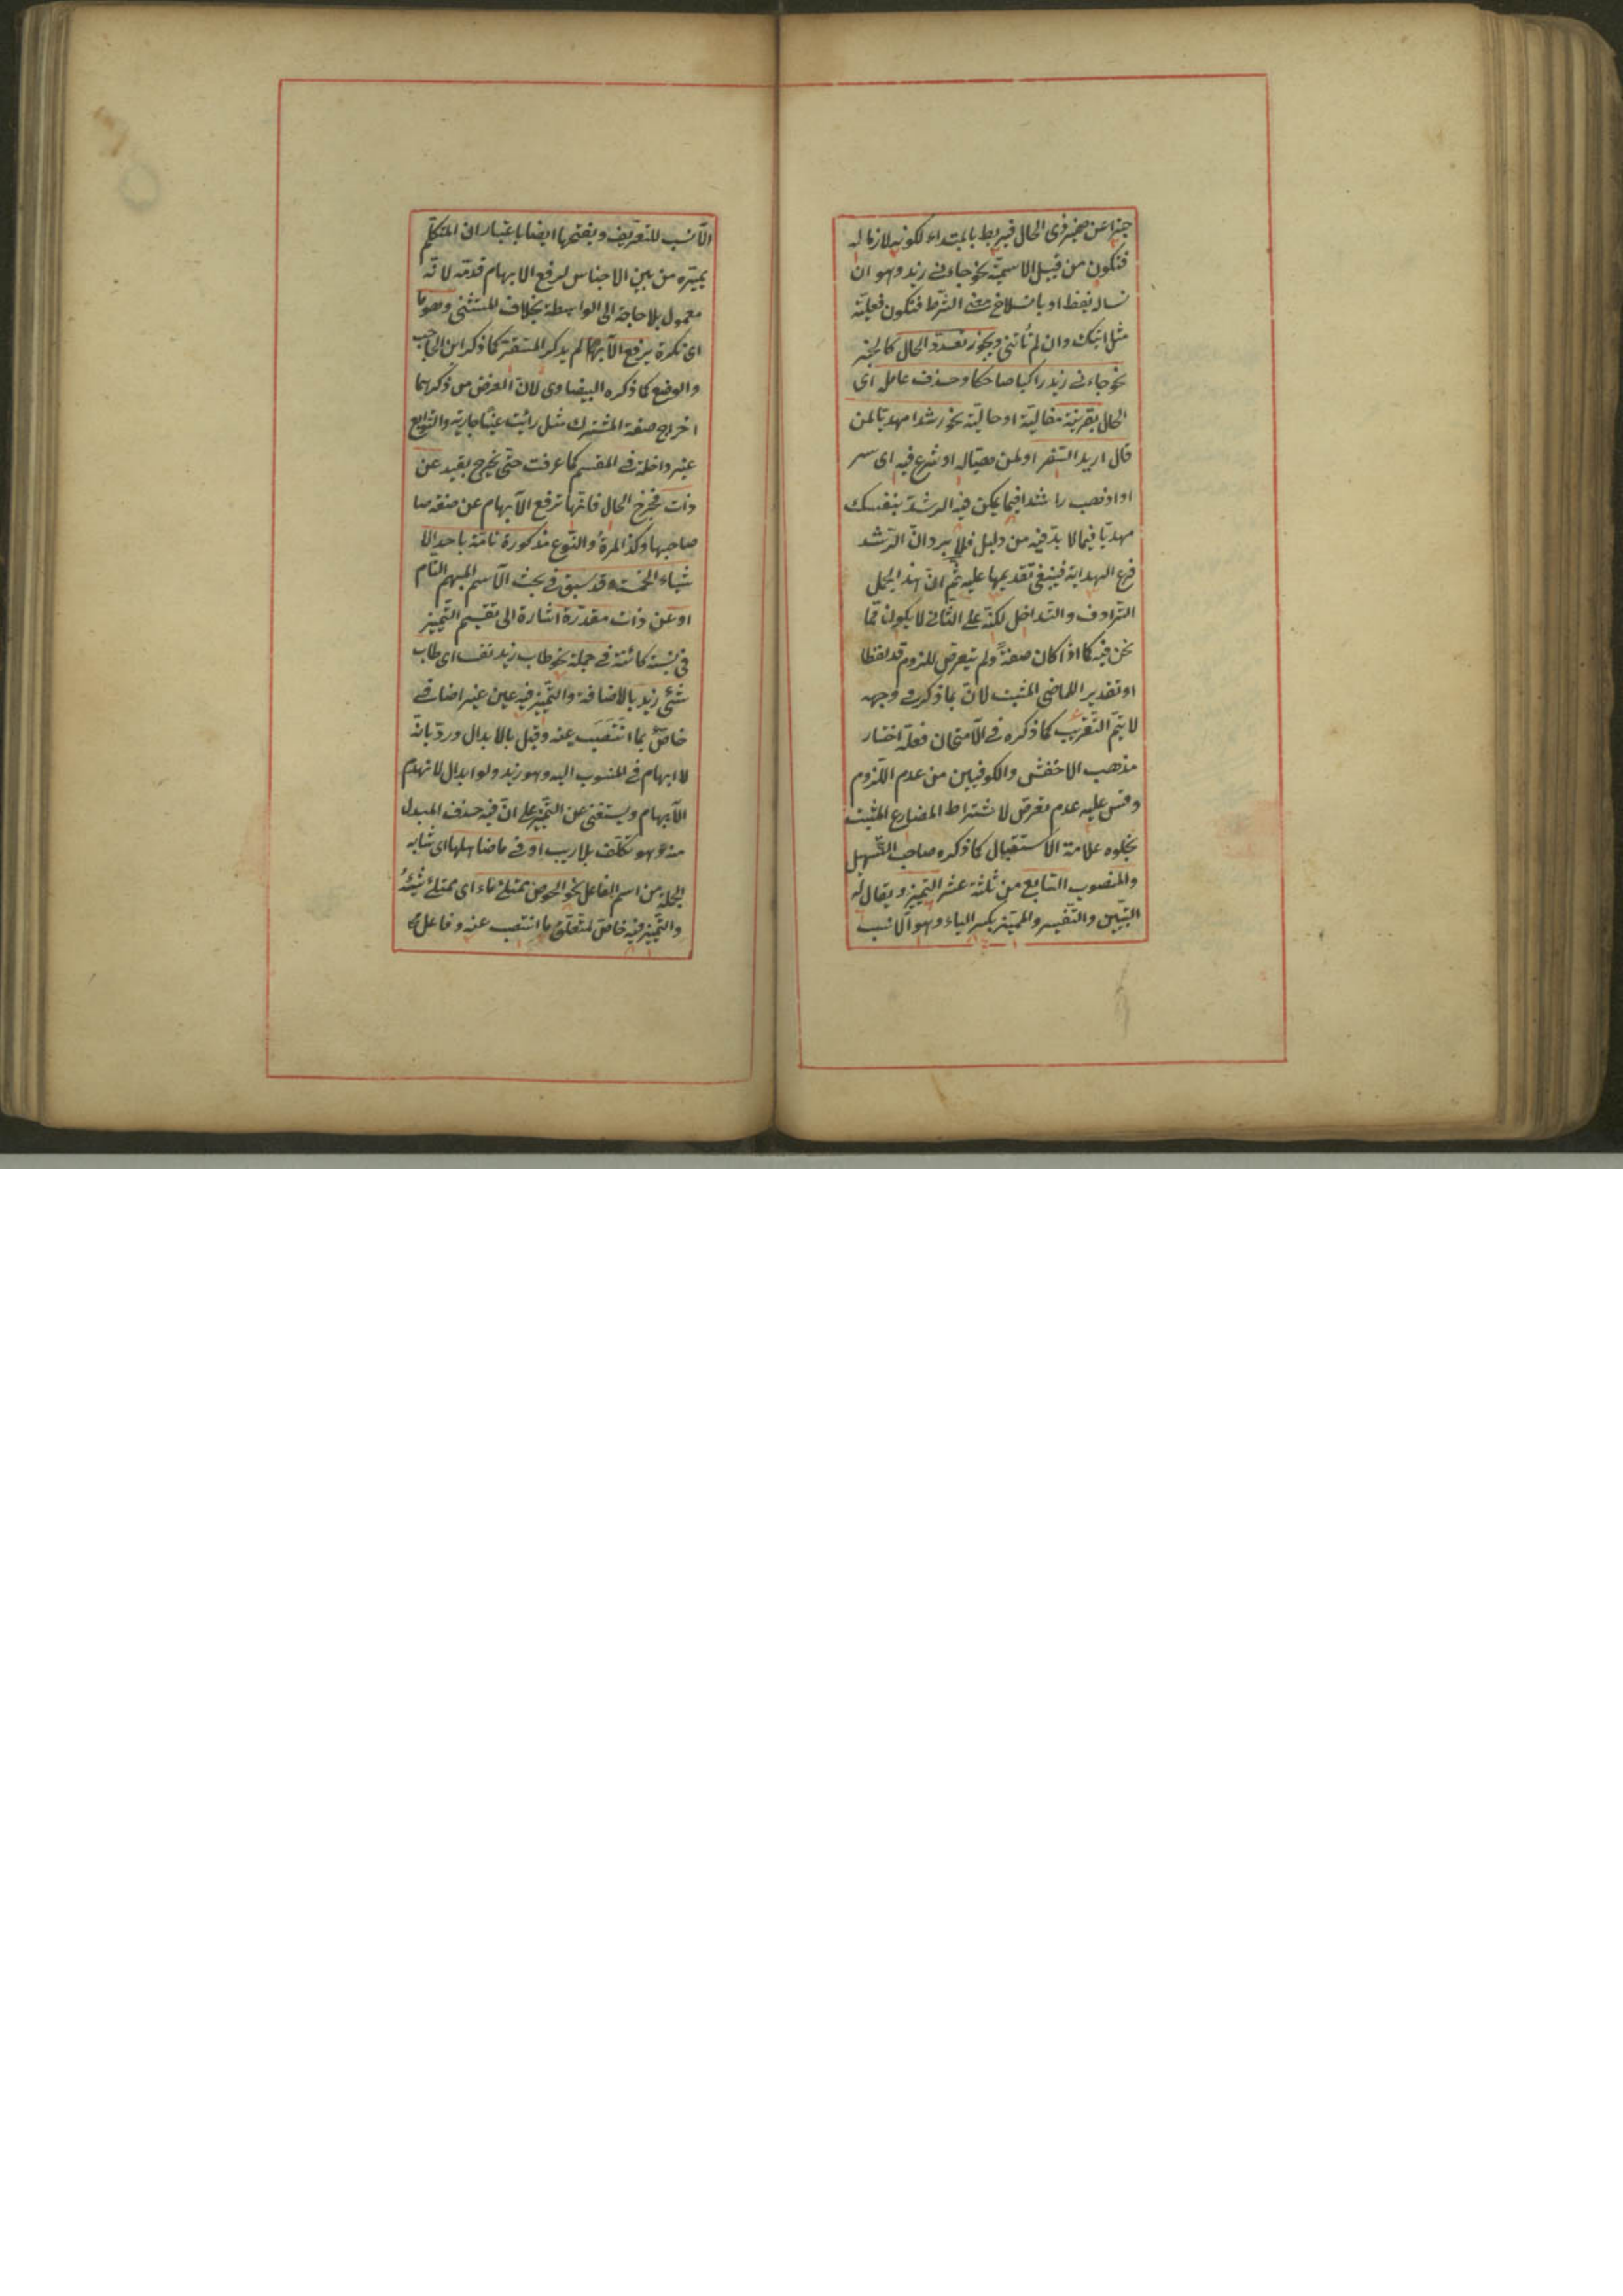 خبرا عن ضمير ذى الحال فيربط بالمبتداء لكونه لازما له
فتكون من قبيل الاسمية نحو جاءنى زيد وهو ان
تساله يعط او بانسلاخ معنى الشرط فتكون فعلية
مثل اتيتك وان لم تأتنى ويجوز تعدد الحال كالخبر
نحو جاءنى زيد راكبا ضاحكا وحذف عامله اى
الحال بقرينة مقالية او حالية نحو راشدا مهديا لمن
قال اريد السفر او لمن تهيأ له او شرع فيه اى سر
او اذهب راشدا فيما يمكن فيه الرشد بنفسك
مهديا فيما لا بد فيه من دليل فلا يرد ان الرشد
فرع الهداية فينبغى تقديمها عليه ثم ان هذا يحمل
الترادف والتداخل لكنه على الثانى لا يكون مما
نحن فيه كما اذا كان صفة ولم يتعرض للزوم قد لفظا
او تقدير الماضى المثبت لان بما ذكر فى وجهه
لا يتم التقريب كما ذكره فى الامتحان فعله اختار
مذهب الاخفش والكوفيين من عدم اللزوم
وقس عليه عدم تعرض لاشتراط المضارع المثبت
بخلوه علامة الاستقبال كما ذكره صاحب التسهيل
والمنصوب السابع من ثلثة عشر التمييز ويقال له
التبيين والتفسير والمميز بكسر الياء وهو الانسب
الانسب للتعريف وبفتحها ايضا باعتبار ان المتكلم
يميزه من بين الاجناس لرفع الابهام قدمه لانه
معمول بلا حاجة الى الواسطة بخلاف المستثنى وهو ما
اى نكرة يرفع الابهام لم يذكر المستقر كما ذكر ابن الحاجب
والوضع كما ذكره البيضاوى لان الغرض من ذكرهما
اخراج صفة المشترك مثل رأيت عينا جارية والتوابع
غير داخلة فى المقسم كما عرفت حتى يخرج بقيد عن
ذات فخرج الحال فانها ترفع الابهام عن صفة صا
صاحبها وكذا المرة والنوع مذكورة تامة باحد الا
شياء الخمسة وقد سبق فى بحث الاسم المبهم التام
او عن ذات مقدرة اشارة الى تقسيم التمييز
فى نسبة كائنة فى جملة نحو طاب زيد نفسا اى طاب
شئ زيد بالاضافة والتمييز فيه عين غير اضافى
خاص بما انتصب عنه وقيل بالابدال ورد بانه
لا ابهام فى المنسوب اليه وهو زيد ولو ابدل لانهدم
الابهام ويستغنى عن التمييز على ان فيه حذف المبدل
منه وهو تكلف بلا ريب او فى ما ضاهاها اى شابه
الجملة من اسم الفاعل نحو الحوض ممتلئ ماء اى ممتلئ شيئه
والتمييز فيه خاص لمتعلق ما انتصب عنه وفاعل